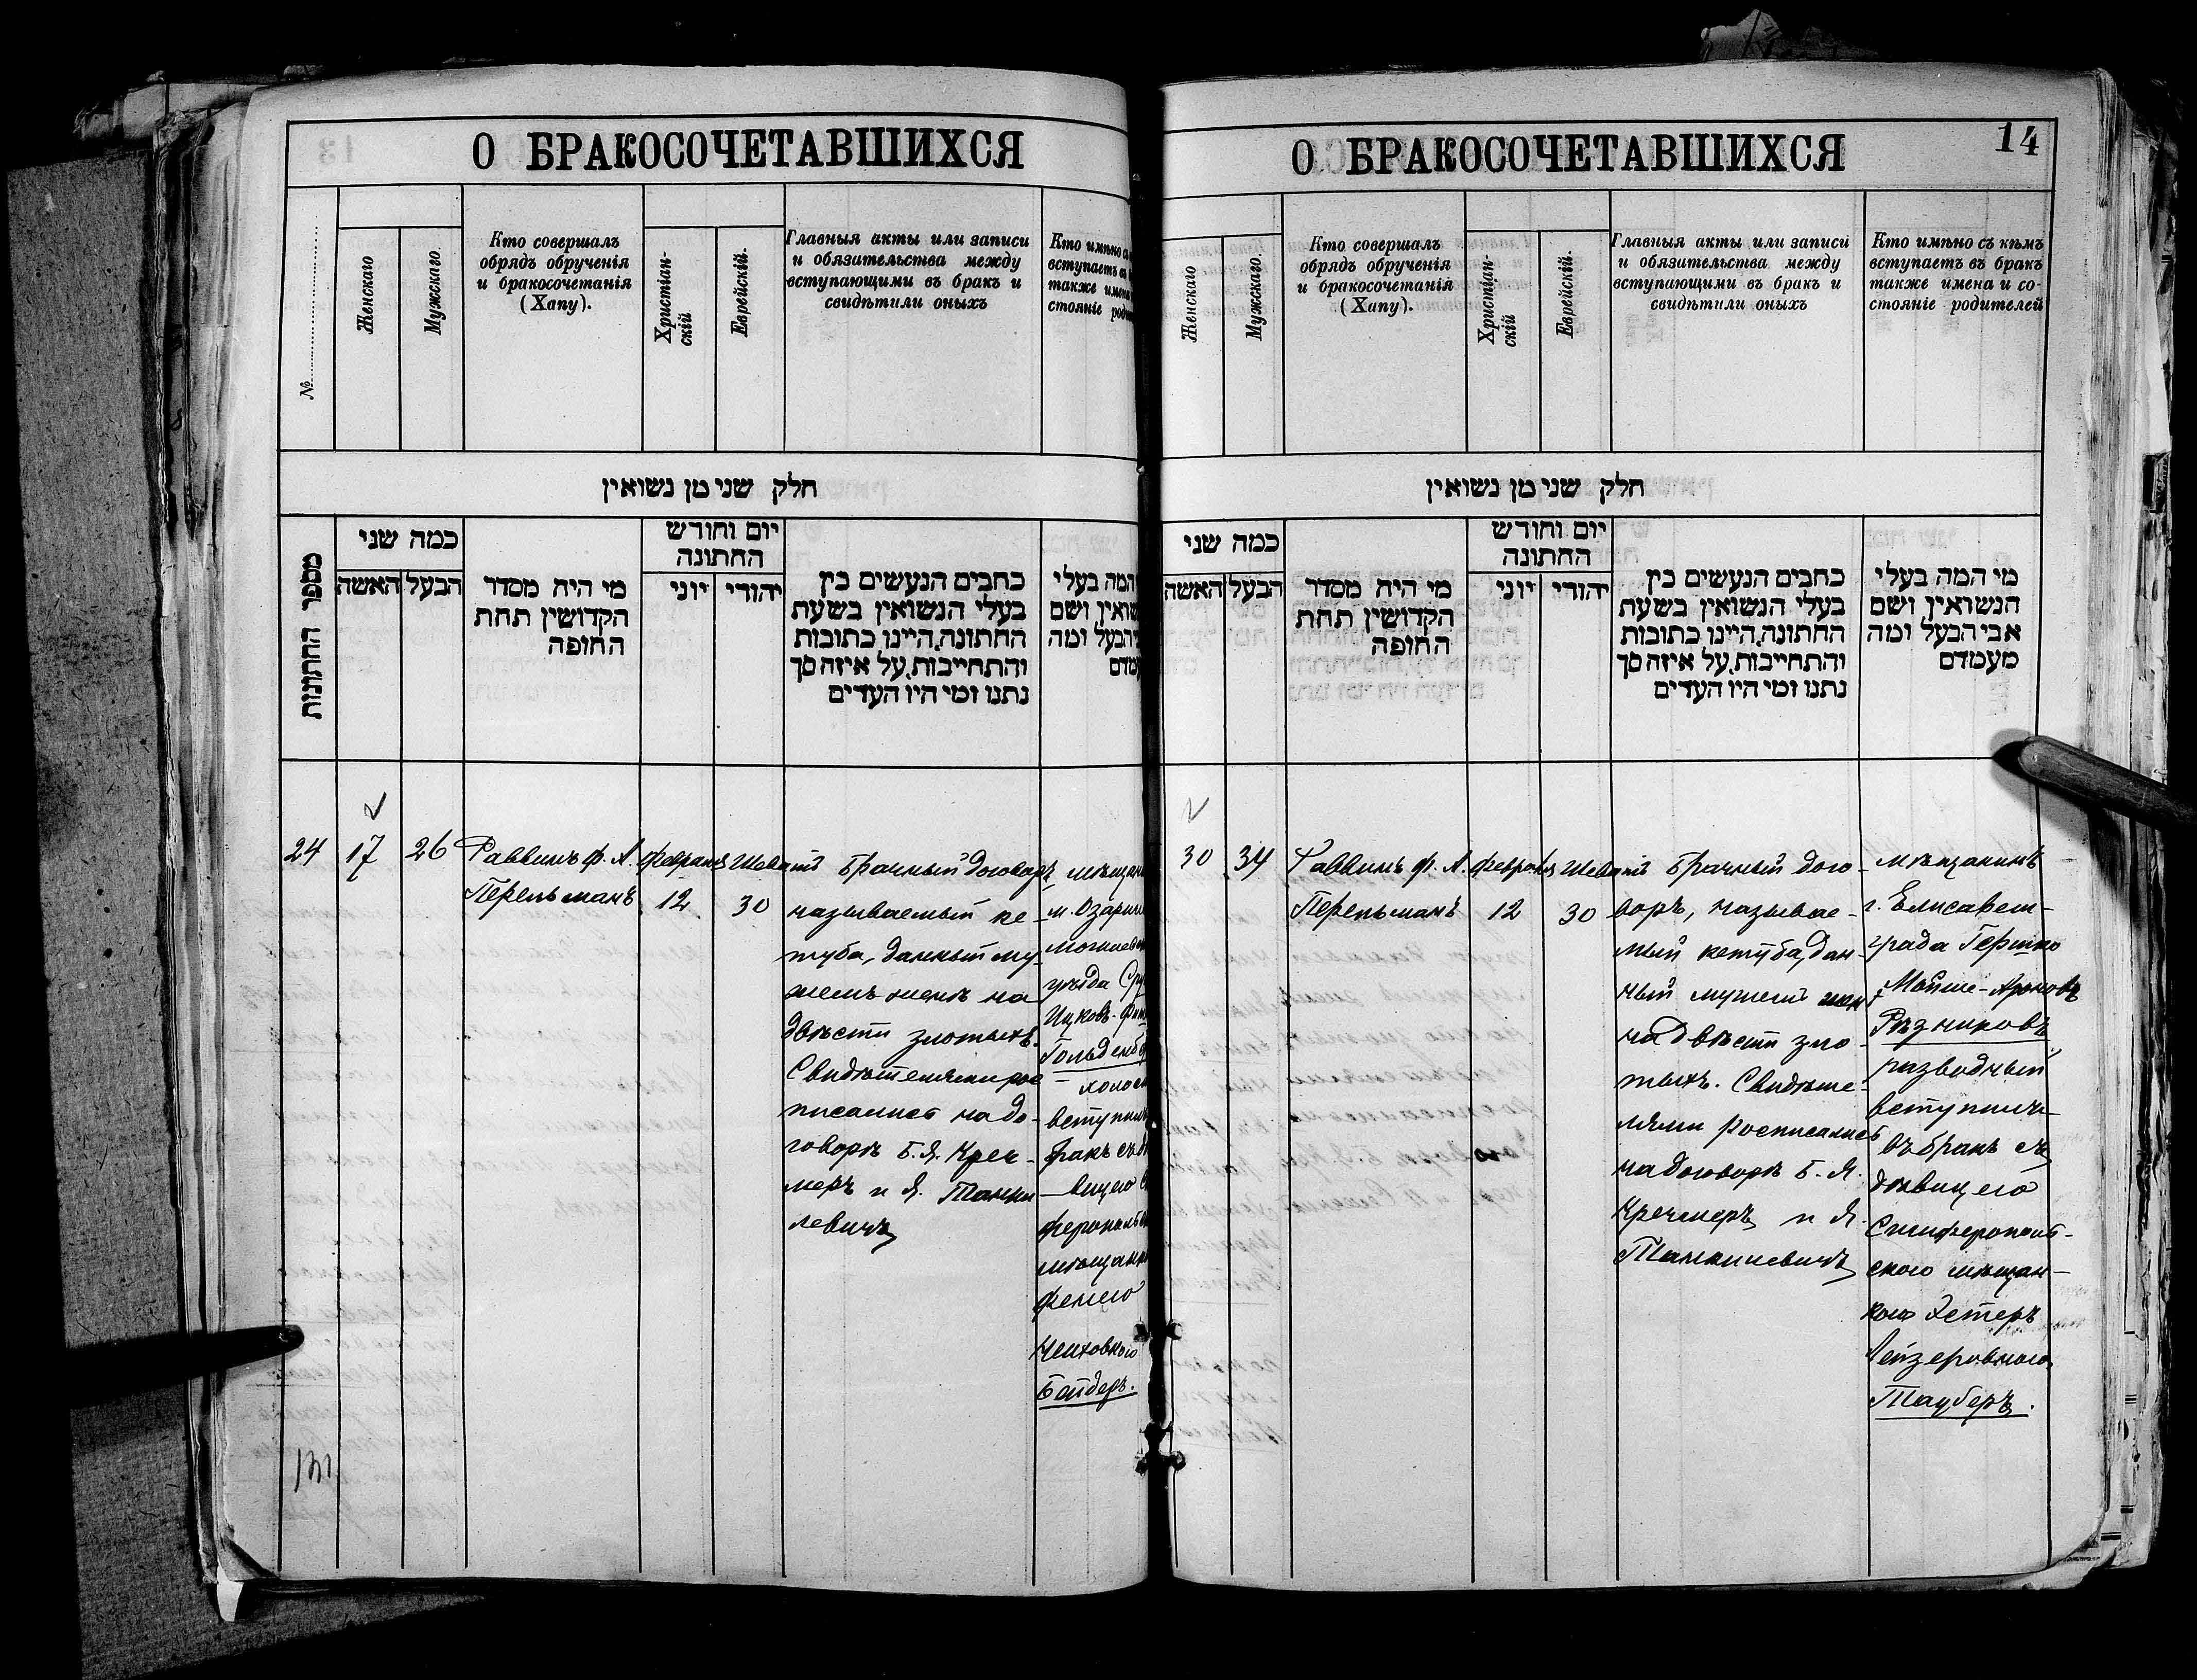 О БРАКОСОЧЕТАВШИХСЯ
№
Женскаго
Мужскаго
Кто совершалъ
обрядъ обрученія
и бракосочетанія
(Хапу).
Христіан-
скій
Еврейскій.
Главныя акты или записи
и обязательства между
вступающими въ бракъ и
свидѣтили оныхъ
Кто имѣно
вступаетъ
также имена
стояніе
חלק שני מן נשואין
מספר החתונות
כמה שני
האשה
הבעל
מי היה מסדר
הקדושין תחת
החופה
יום וחודש
החתונה
יוני
יהודי
כתבים הנעשים בין
בעלי הנשואין בשעת
החתונה,היינו כתובות
והתחייבות,על איזה סך
נתנו ומי היו העדים
המה בעלי
ושם
הבעל ומה
24
17
26
Раввинъ Ф. А.
Перельманъ
Февраля
12
Шеватъ
30
Брачный договоръ,
называемый ке-
туба, данный му-
жемъ женѣ на
двѣсти злотыхъ.
Свидѣтелями рос
писались на до-
говорѣ Б. Я. Креч-
меръ и Я. Танки
левичъ
м. Озарин
уѣзда
Ицковъ
Гольденбе
вступилъ
фейгою
Бейдеръ.
131
О БРАКОСОЧЕТАВШИХСЯ
14
Женскаго
Мужскаго.
Кто совершалъ
обрядъ обрученія
и бракосочетанія
(Хапу).
Христіан-
скій
Еврейскій.
Главныя акты или записи
и обязательства между
вступающими въ бракъ и
свидѣтили оныхъ
Кто имѣно съ кѣмъ
вступаетъ въ бракъ
также имена и со-
стояніе родителей
חלק שני מן נשואין
כמה שני
האשה
הבעל
מי היה מסדר
הקדושין תחת
החופה
יום וחודש
החתונה
יוני
יהודי
כתבים הנעשים בין
בעלי הנשואין בשעת
החתונה,היינו כתובות
והתחייבות,על איזה סך
נתנו ומי היו העדים
מי המה בעלי
הנשואין ושם
אבי הבעל ומה
מעמדם
30
34
Раввинъ Ф. А.
Перельманъ
Февраля
12
Шеватъ
30
Брачный дого-
воръ, называе-
мый кетуба, дан-
ный мужемъ жен
на двѣсти зло-
тыхъ. Свидѣте-
лями росписались
на договорѣ Б. Я.
Кречмеръ и Я.
Танкилевичъ
мѣщанинъ
г. Елисавет-
града Гершко
Мойше-Ароновъ
Рѣзниковъ
разводный
вступилъ
въ бракъ съ
дѣвицею
Симферополь-
скою мѣщан-
кою Эстеръ
Лейзеровною
Тауберъ.